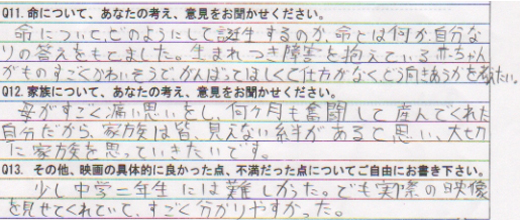 Q11. 命について、あなたの考え、意見をお聞かせください。
命について、どのようにして誕生するのか、命とは何か、自分な
りの答えをもてました。生まれつき障害を抱えている赤ちゃん
がものすごくかわいそうで、がんばってほしくて仕方がなく、どう向きあうかを考えたい。
Q12. 家族について、あなたの考え、意見をお聞かせください。
母がすごく痛い思いをし、何ヶ月も奮闘して産んでくれた
自分だから、家族は皆、見えない絆があると思い、大切
に家族を思っていきたいです。
Q13. その他、映画の具体的に良かった点、不満だった点についてご自由にお書き下さい。
少し中学二年生には難しかった。でも実際の映像
を見せてくれていて、すごく分かりやすかった。